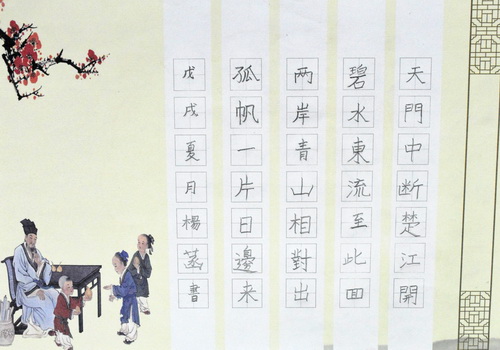 天門中断楚江開
碧水東流至此回
两岸青山相對出
孤帆一片日邊来
戊戌夏月楊書